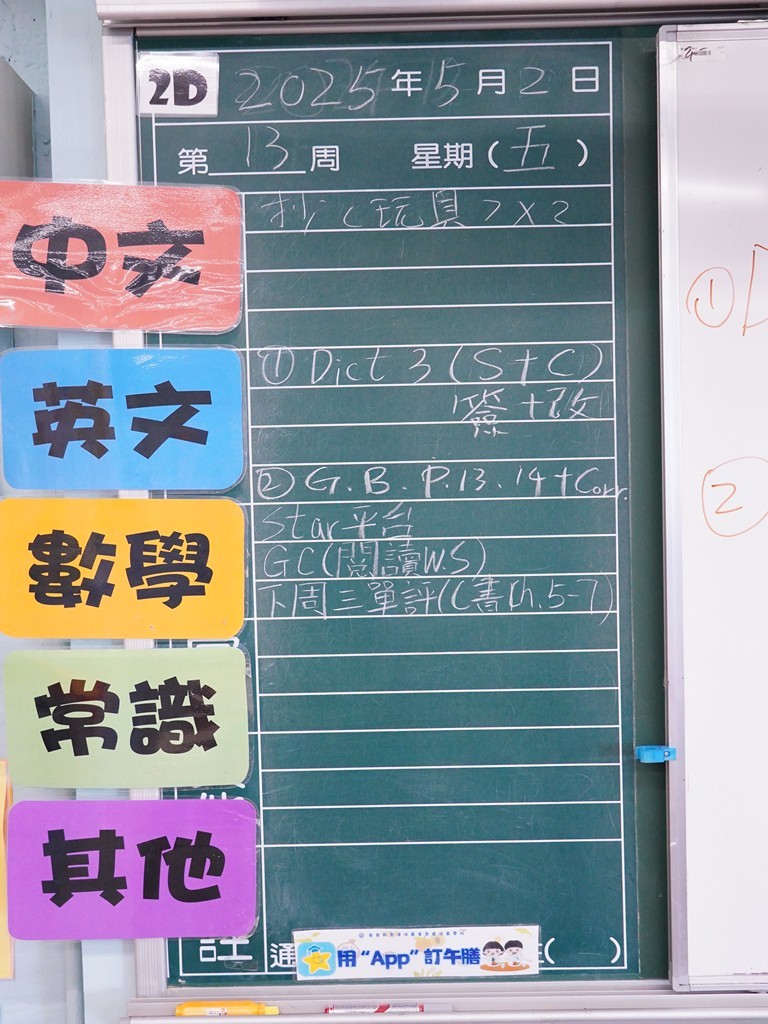 2D 2025年5月2日
第13周 星期(五)
中文
抄〈玩具〉x2
英文
① Dict 3 (S+C)
簽+改
② G.B. P.13.14+Corr.
數學
Star平台
GC(閱讀W.S)
下周三單評(C書Ch.5-7)
常識
其他
註 通
用“App”訂午膳
( )
①
②